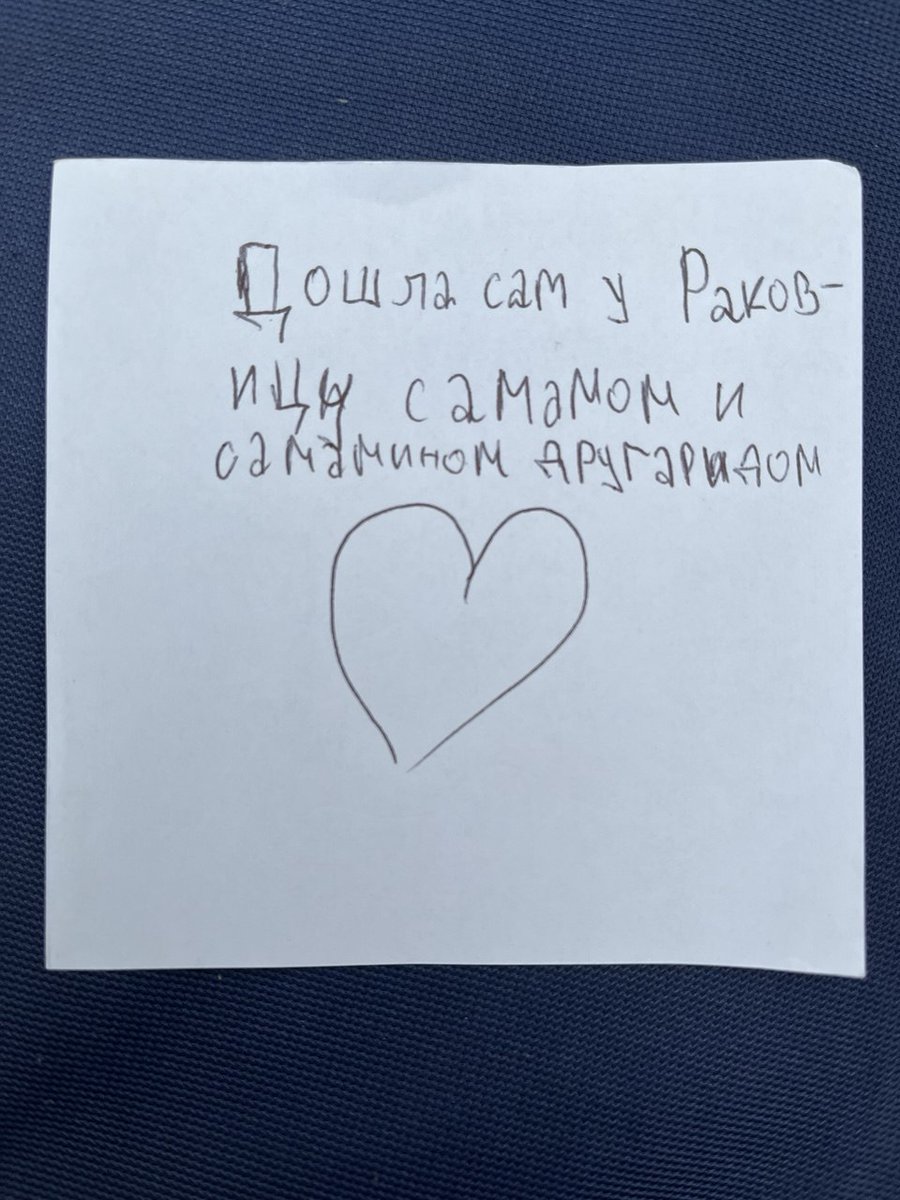 Дошла сам у Раков-
ицу самамом и
самамином другарицом